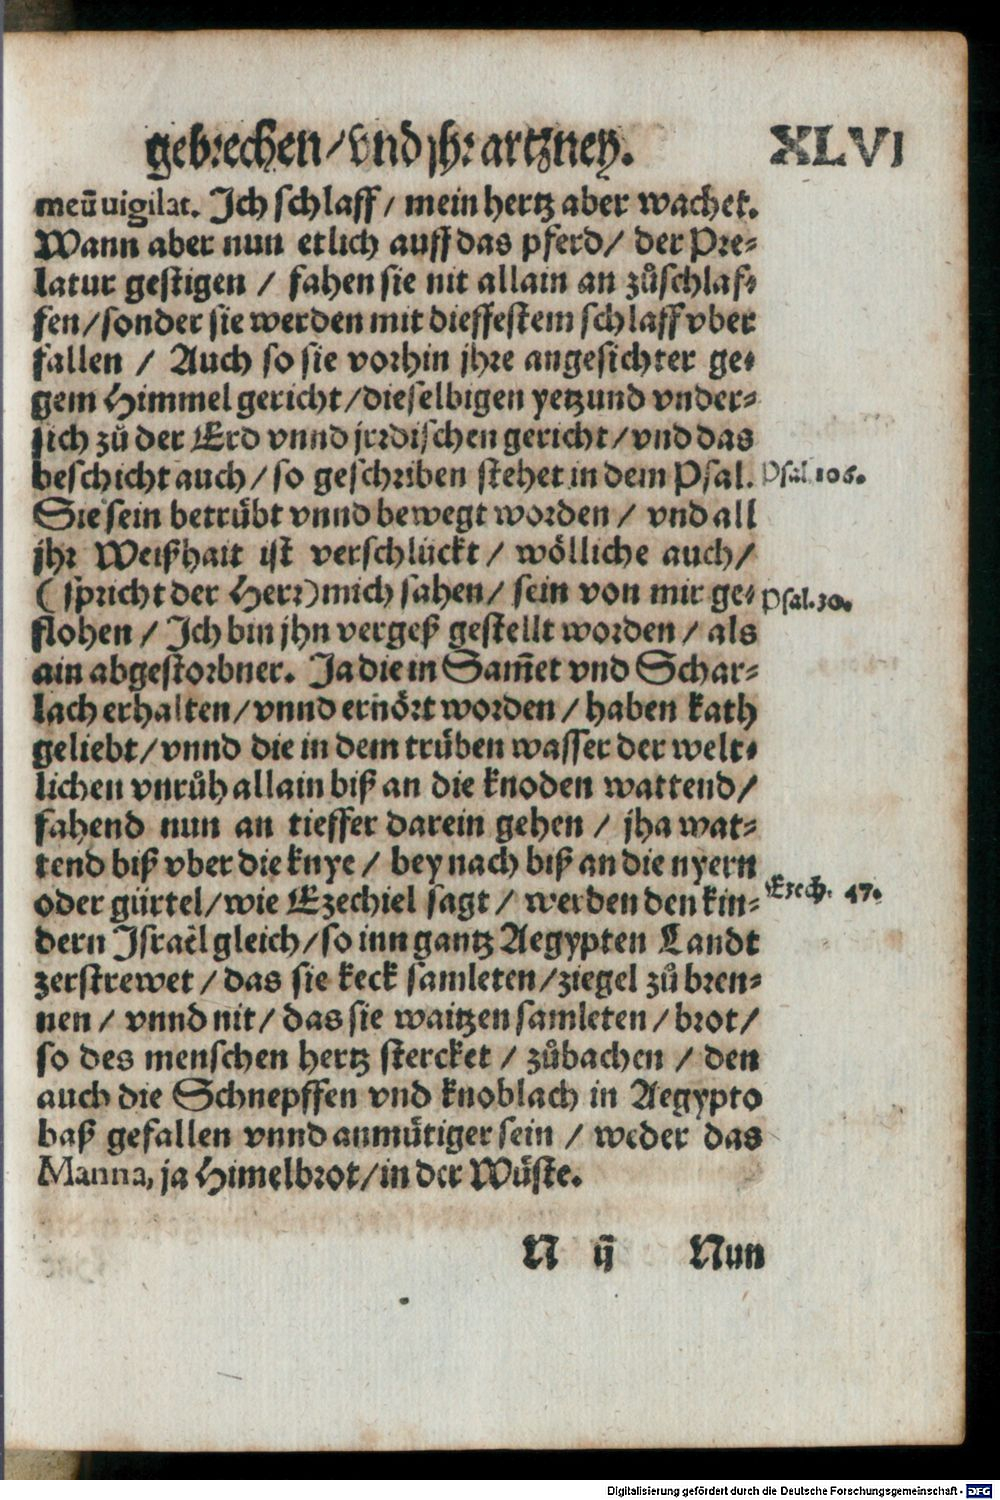 gebrechen/vnd jhr artzney. XLVI
meūuigilat. Ich schlaff/ mein hertz aber wachet.
Wann aber nun etlich auff das pferd/ der Pre-
latur gestigen / fahen sie nit allain an zůschlaf-
fen/sonder sie werden mit dieffestem schlaff vber
fallen / Auch so sie vorhin jhre angesichter ge-
gem Himmel gericht/dieselbigen yetzund vnder-
sich zů der Erd vnnd jrrdischen gericht/vnd das
beschicht auch/ so geschriben stehet in dem Psal. Psal.106.
Sie sein betrübt vnnd bewegt worden / vnd all
jhr Weißhait ist verschluckt / wölliche auch/
(spricht der Herr) mich sahen/ sein von mir ge- Psal.30.
flohen / Ich bin jhn vergeß gestellt worden / als
ain abgestorbner. Ja die in Sam̄et vnd Schar-
lach erhalten/vnnd ernört worden / haben kath
geliebt/vnnd die in dem trüben wasser der welt-
lichen vnrůh allain biß an die knoden wattend/
fahend nun an tieffer darein gehen / jha wat-
tend biß vber die knye / bey nach biß an die nyern
oder gürtel/wie Ezechiel sagt / werden den kin- Ezech. 47.
dern Israël gleich/so inn gantz Aegypten Landt
zerstrewet / das sie keck samleten/ziegel zů bren-
nen / vnnd nit/ das sie waitzen samleten/brot/
so des menschen hertz stercket / zůbachen / den
auch die Schnepffen vnd knoblach in Aegypto
baß gefallen vnnd anmütiger sein / weder das
Manna, ja Himelbrot/in der Wüste.
N ij Nun
Digitalisierung gefördert durch die Deutsche Forschungsgemeinschaft - DFG